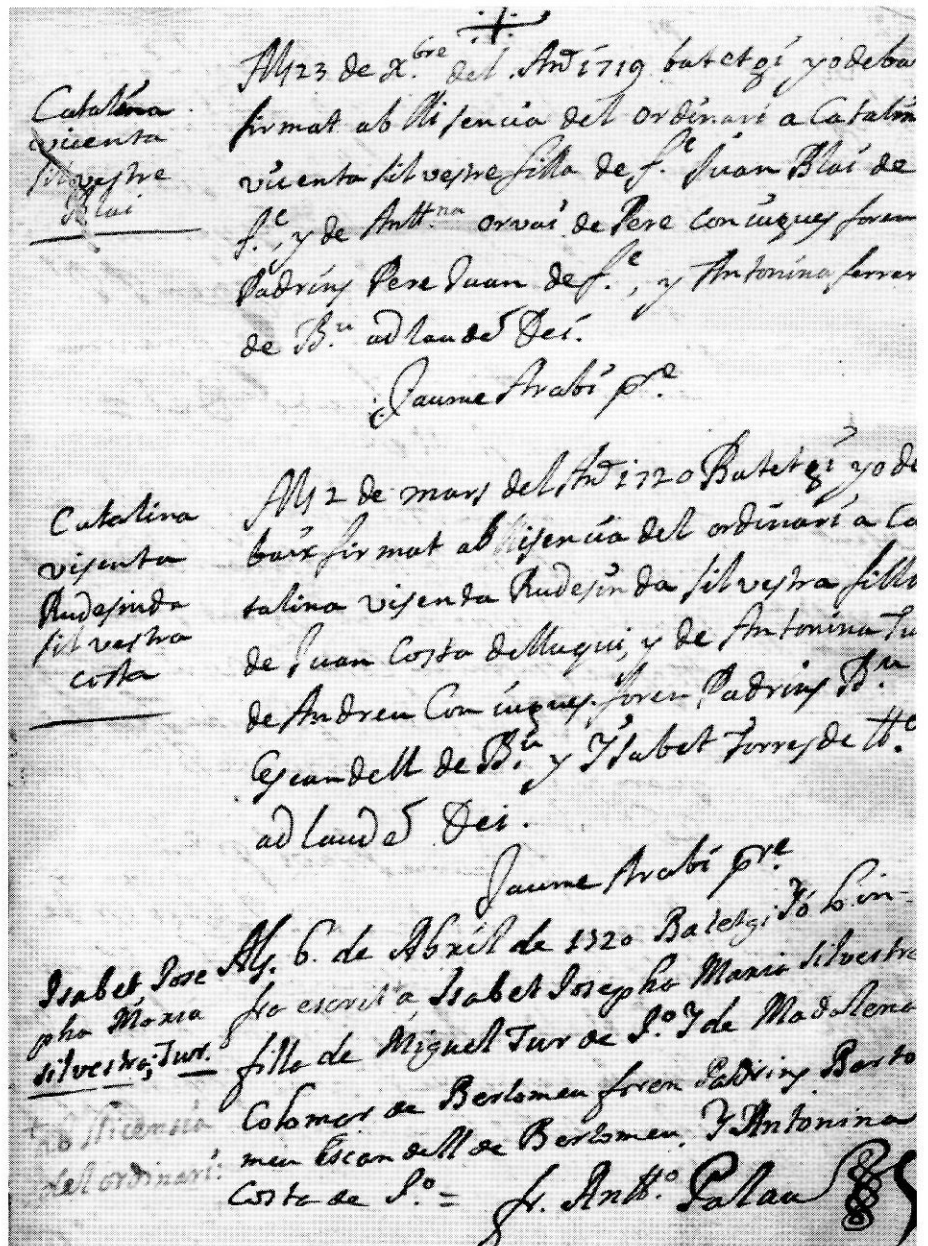 Catalina
vicenta
silvestre
Blai
Als 23 de x.bre del Añ 1719 batetgi yo deba
firmat ab llisencia del ordinari a Catalin
vicenta silvestre filla de f.c Juan Blai de
f.c, y de Antt.na orvai de Pere coniuques foren
Padrins Pere Juan de f.c, y Antonina ferrer
de B.u ad laudẽ Dei.
Jaume Arabi pre.
Catalina
visenta
Rudesinda
silvestra
costa
Als 2 de mars del Añ 1720 Batetgi yo de
baix firmat ab llisencia del ordinari a Ca
talina visenta Rudesinda silvestra filla
de Juan Costa de lluqui, y de Antonina Tu
de Andreu Coniuques. foren Padrins B.u
Escandell de B.u y Ysabet Torres de
ad laudẽ Dei.
Jaume Arabi pre.
Isabet Jose
pha Maria
silvestra, Tur.
+ ab llicencia
del ordinari:
Als. 6. de Abril de 1720 Batetgi Yo lo in-
fra escrit + a Isabet Josepha Maria silvestra
filla de Miguel Tur de J.o Y de Madalena
Colomar de Bertomeu foren Padrins Berto
meu Escandell de Bertomeu, Y Antonina
Costa de J.o = fr. Antt.o Palau